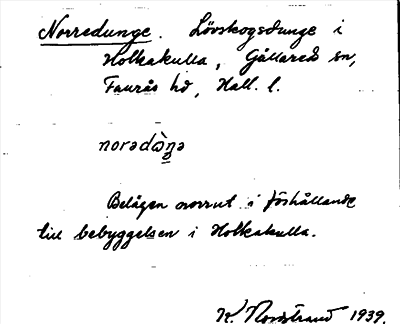 Norredunge. Lövskogsdunge i
Holkakulla, Gällareds sn,
Faurås hd, Hall. l.
norədòŋə
Belägen norrut i förhållande
till bebyggelsen i Holkakulla.
K. Nordstrand 1939.